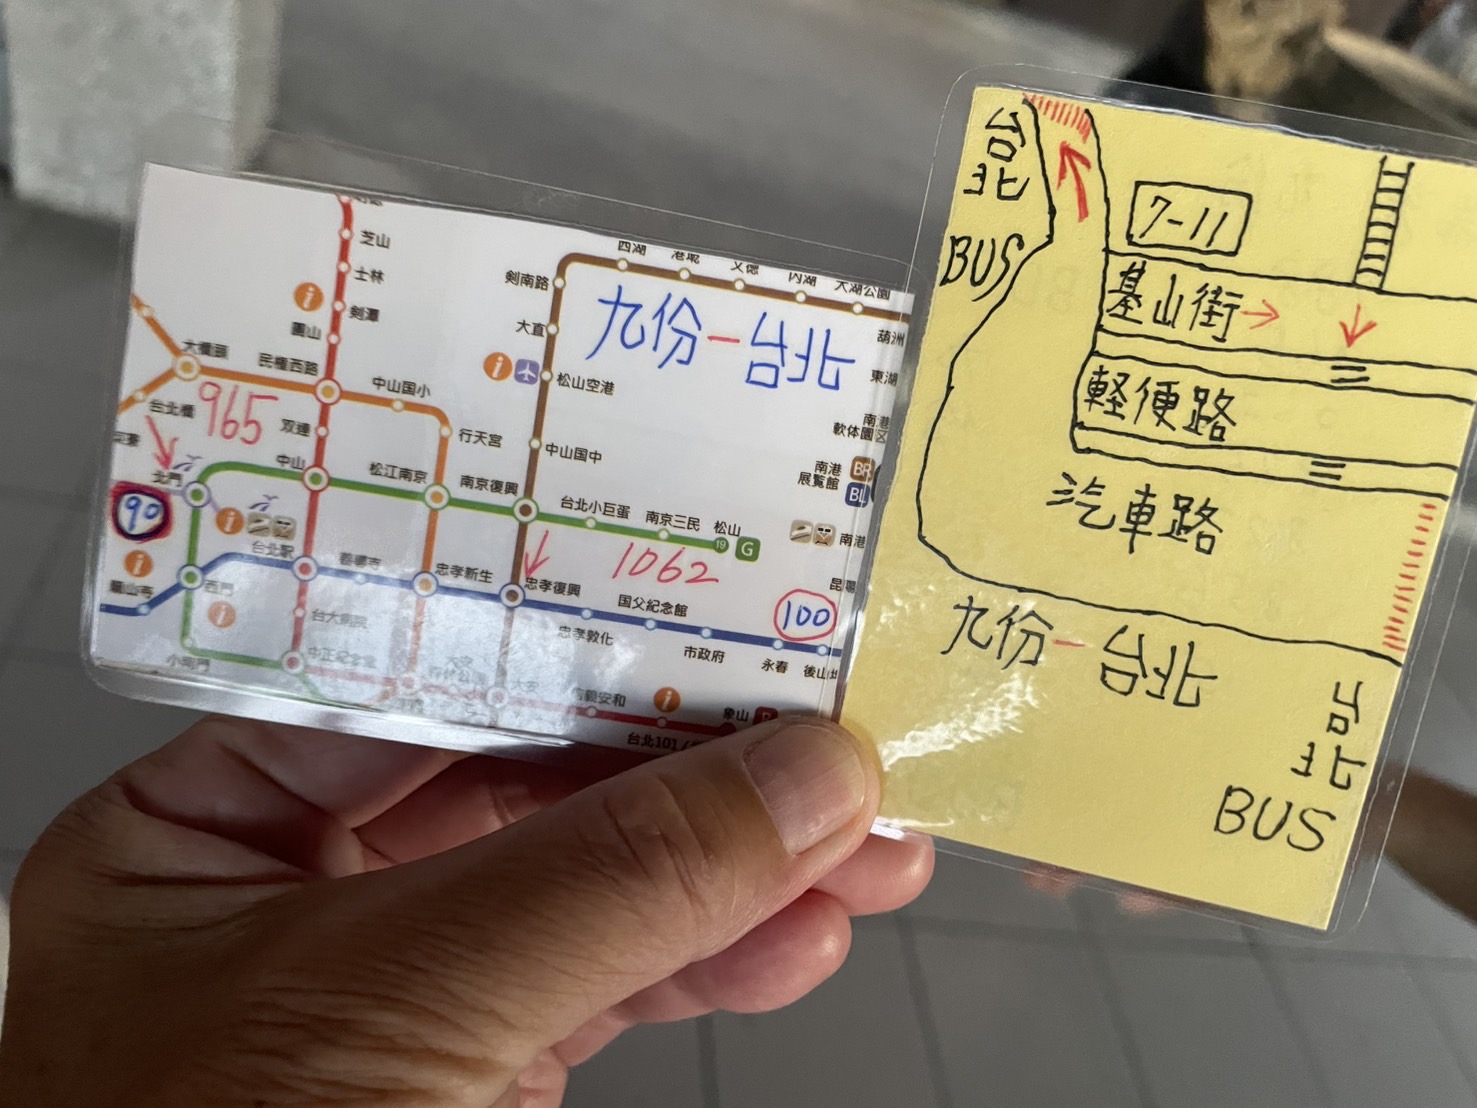 芝山
士林
剣潭
圓山
大橋頭
民権西路
中山国小
台北橋
965
双連
行天宮
北門
中山
松江南京
南京復興
90
台北駅
善導寺
忠孝新生
龍山寺
西門
台大病院
小南門
中正紀念堂
大安
剣南路
西湖
港墘
文徳
内湖
大湖公園
葫洲
大直
九份-台北
東湖
松山空港
南港
軟体園区
中山国中
南港
展覧館
BR
BL
台北小巨蛋
南京三民
松山
19
G
南港
1062
忠孝復興
国父紀念館
100
忠孝敦化
市政府
永春
後山
信義安和
象山
台北101/
台北
BUS
7-11
基山街→
軽便路
汽車路
九份-台北
台北
BUS